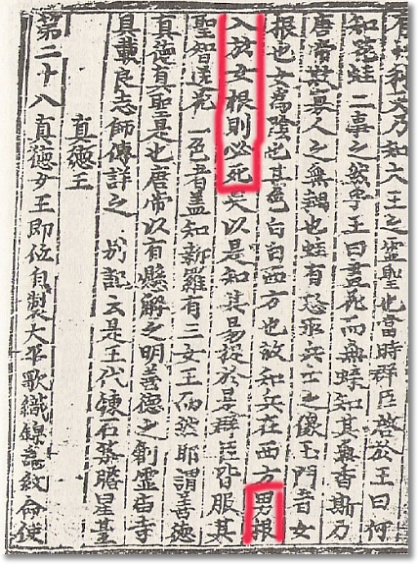 有忉利天乃知大王之靈聖也當時群臣啓於王曰何
知花蛙二事之然乎王曰畫花而無蝶知其無香斯乃
唐帝欺寡人之無耦也蛙有怒形兵士之像玉門者女
根也女爲陰也其色白白西方也故知兵在西方男根
入於女根則必死矣以是知其易捉於是群臣皆服其
聖智送花三色者盖知新羅有三女王而然耶謂善德
真德真聖是也唐帝以有懸解之明善德之創霊庙寺
具載良志師傳詳之別記云是王代鍊石築瞻星臺
真德王
第二十八真德女王即位自製大平歌織錦爲紋命使